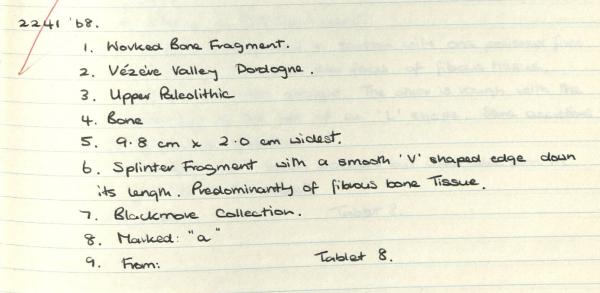 2241 'b8.
1. Worked Bone Fragment.
2. Vézère Valley Dordogne.
3. Upper Paleolithic
4. Bone
5. 9.8 cm x 2.0 cm widest.
6. Splinter Fragment with a smooth 'V' shaped edge down
its length. Predominantly of fibrous bone Tissue.
7. Blackmore Collection.
8. Marked: "a"
9. From: Tablet 8.